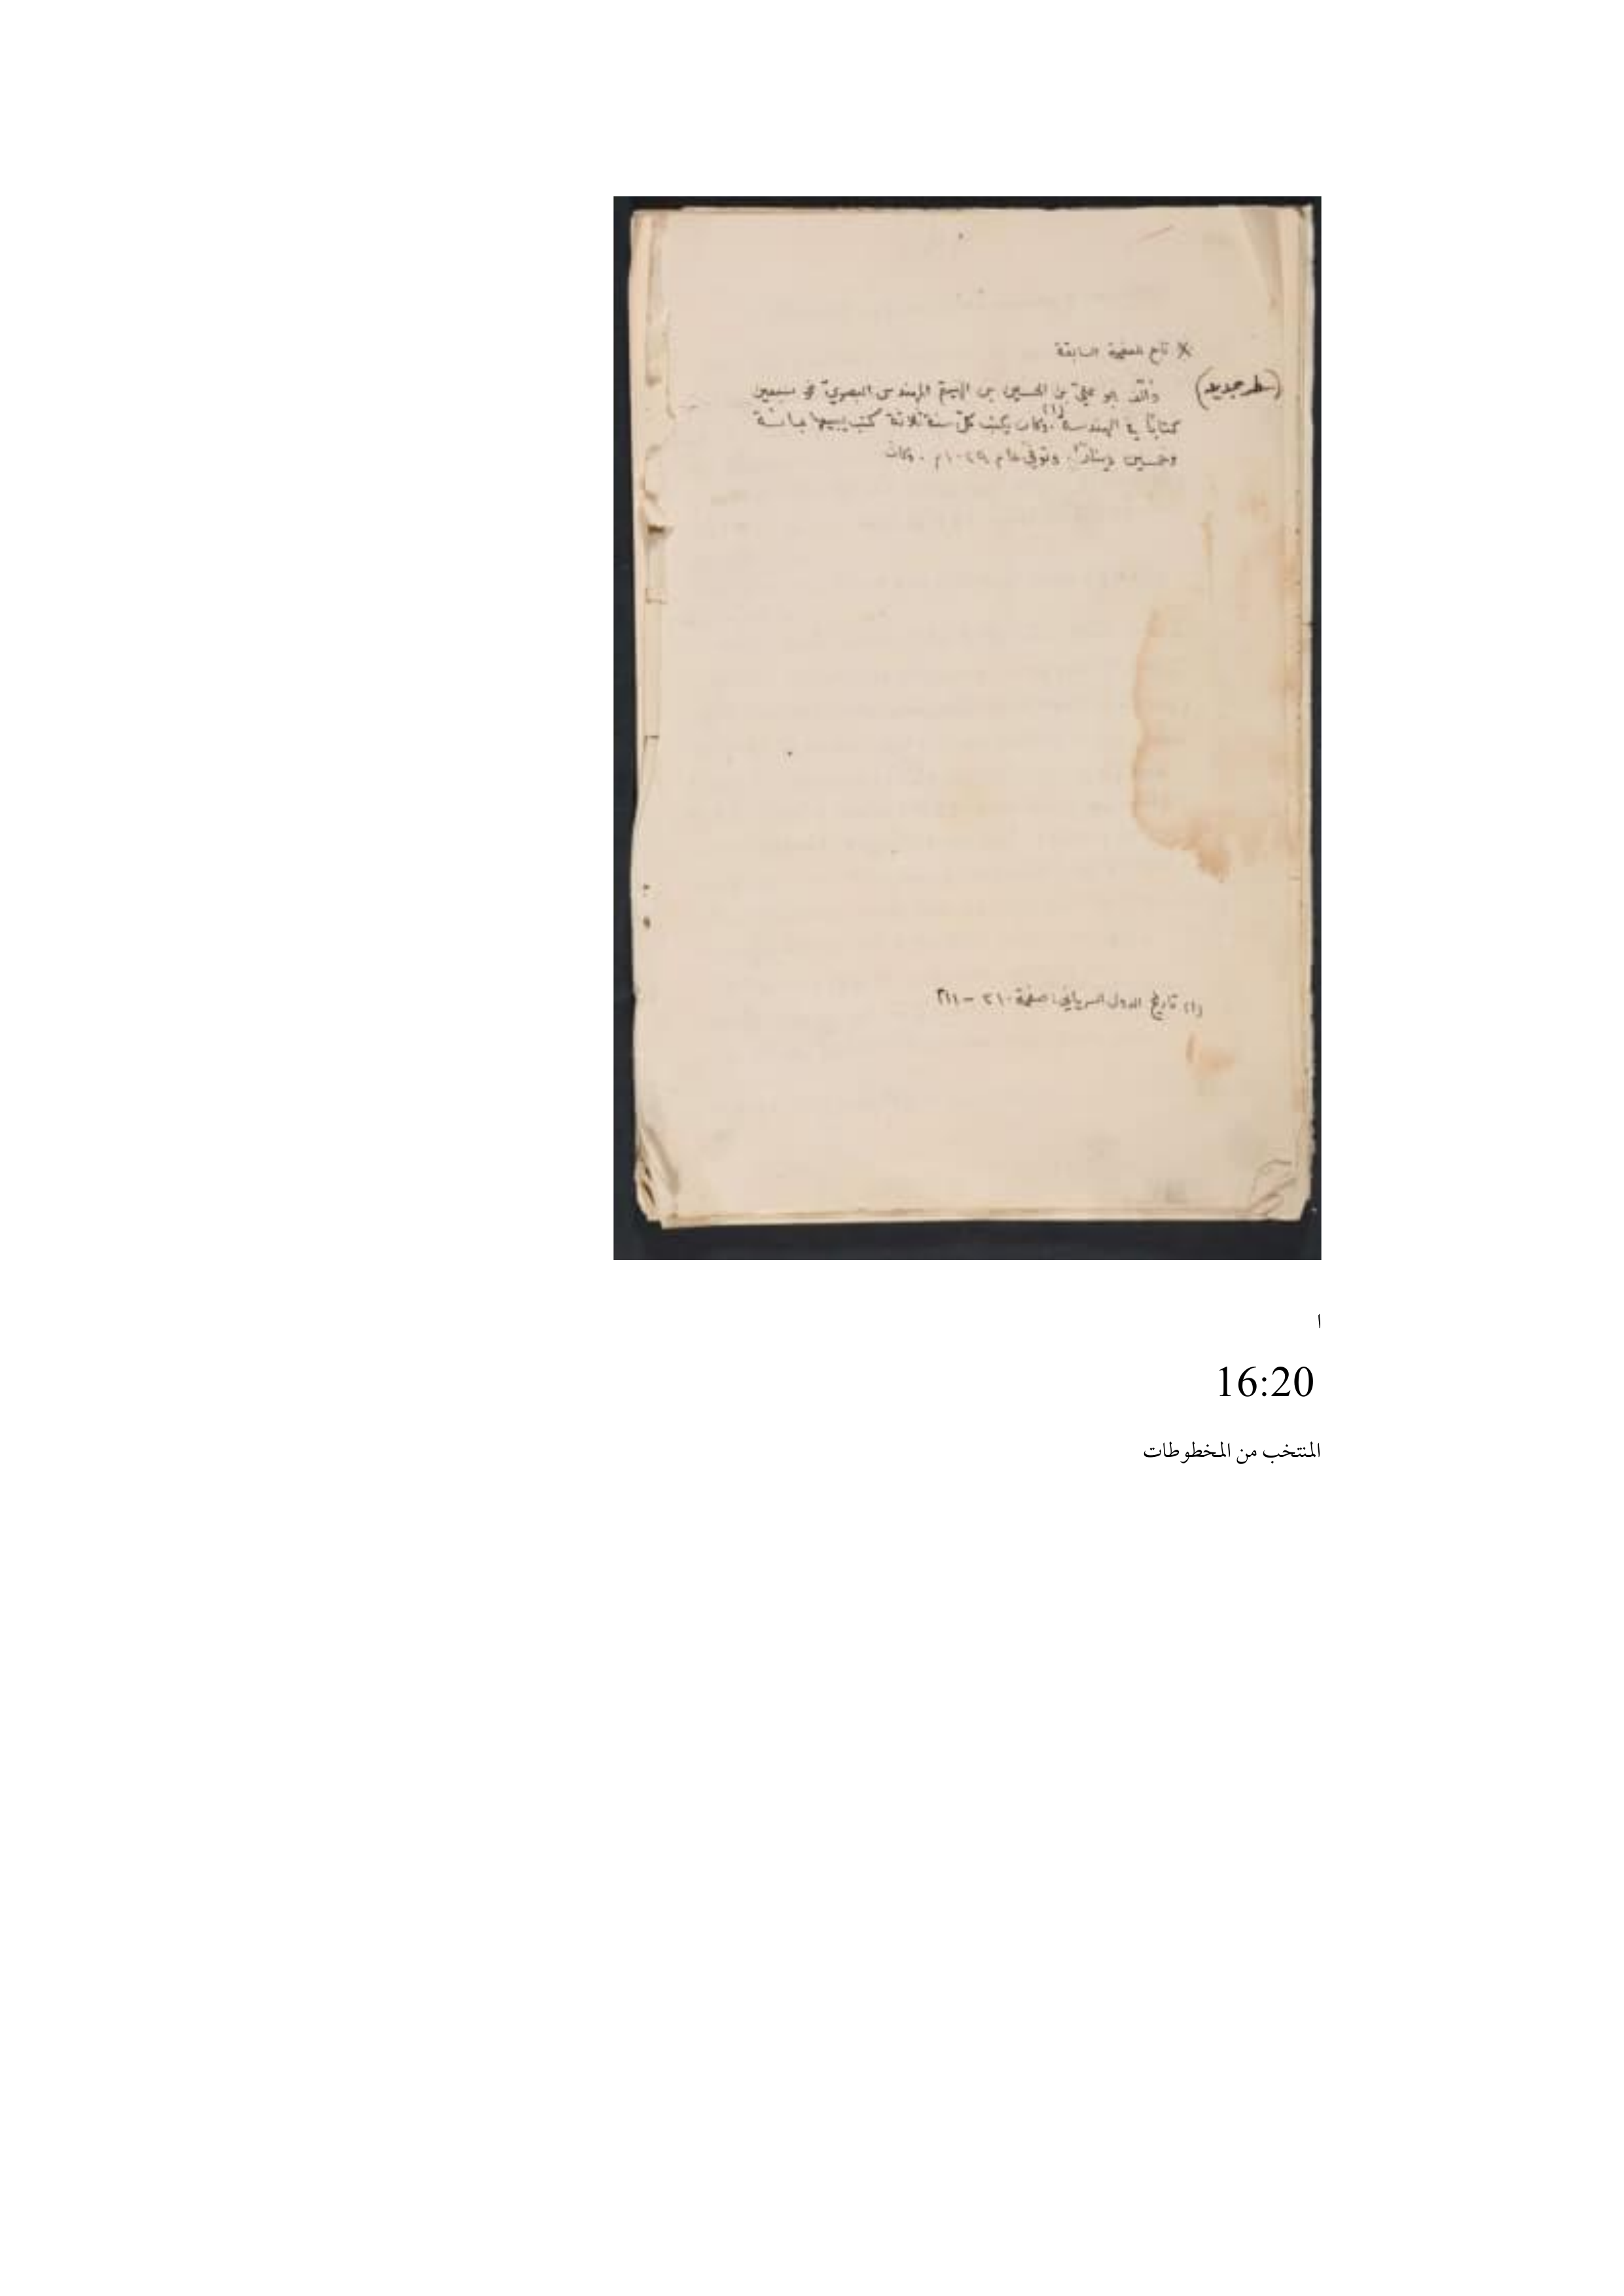 * تابع الصفحة السابقة
(سطر جديد) وألّف ابو عليّ بن الحسين بن الهيثم المهندس البصريّ نحو سبعين
كتاباً في الهندسة(١). وكان يكتب كلّ سنة ثلاثة كتب يبيعها بمائة
وخمسين ديناراً. وتوفي عام ١٠٢٩م. وكان
(١) تاريخ الدول السرياني، صفحة ٢١٠ – ٢١١
ا
16:20
المنتخب من المخطوطات